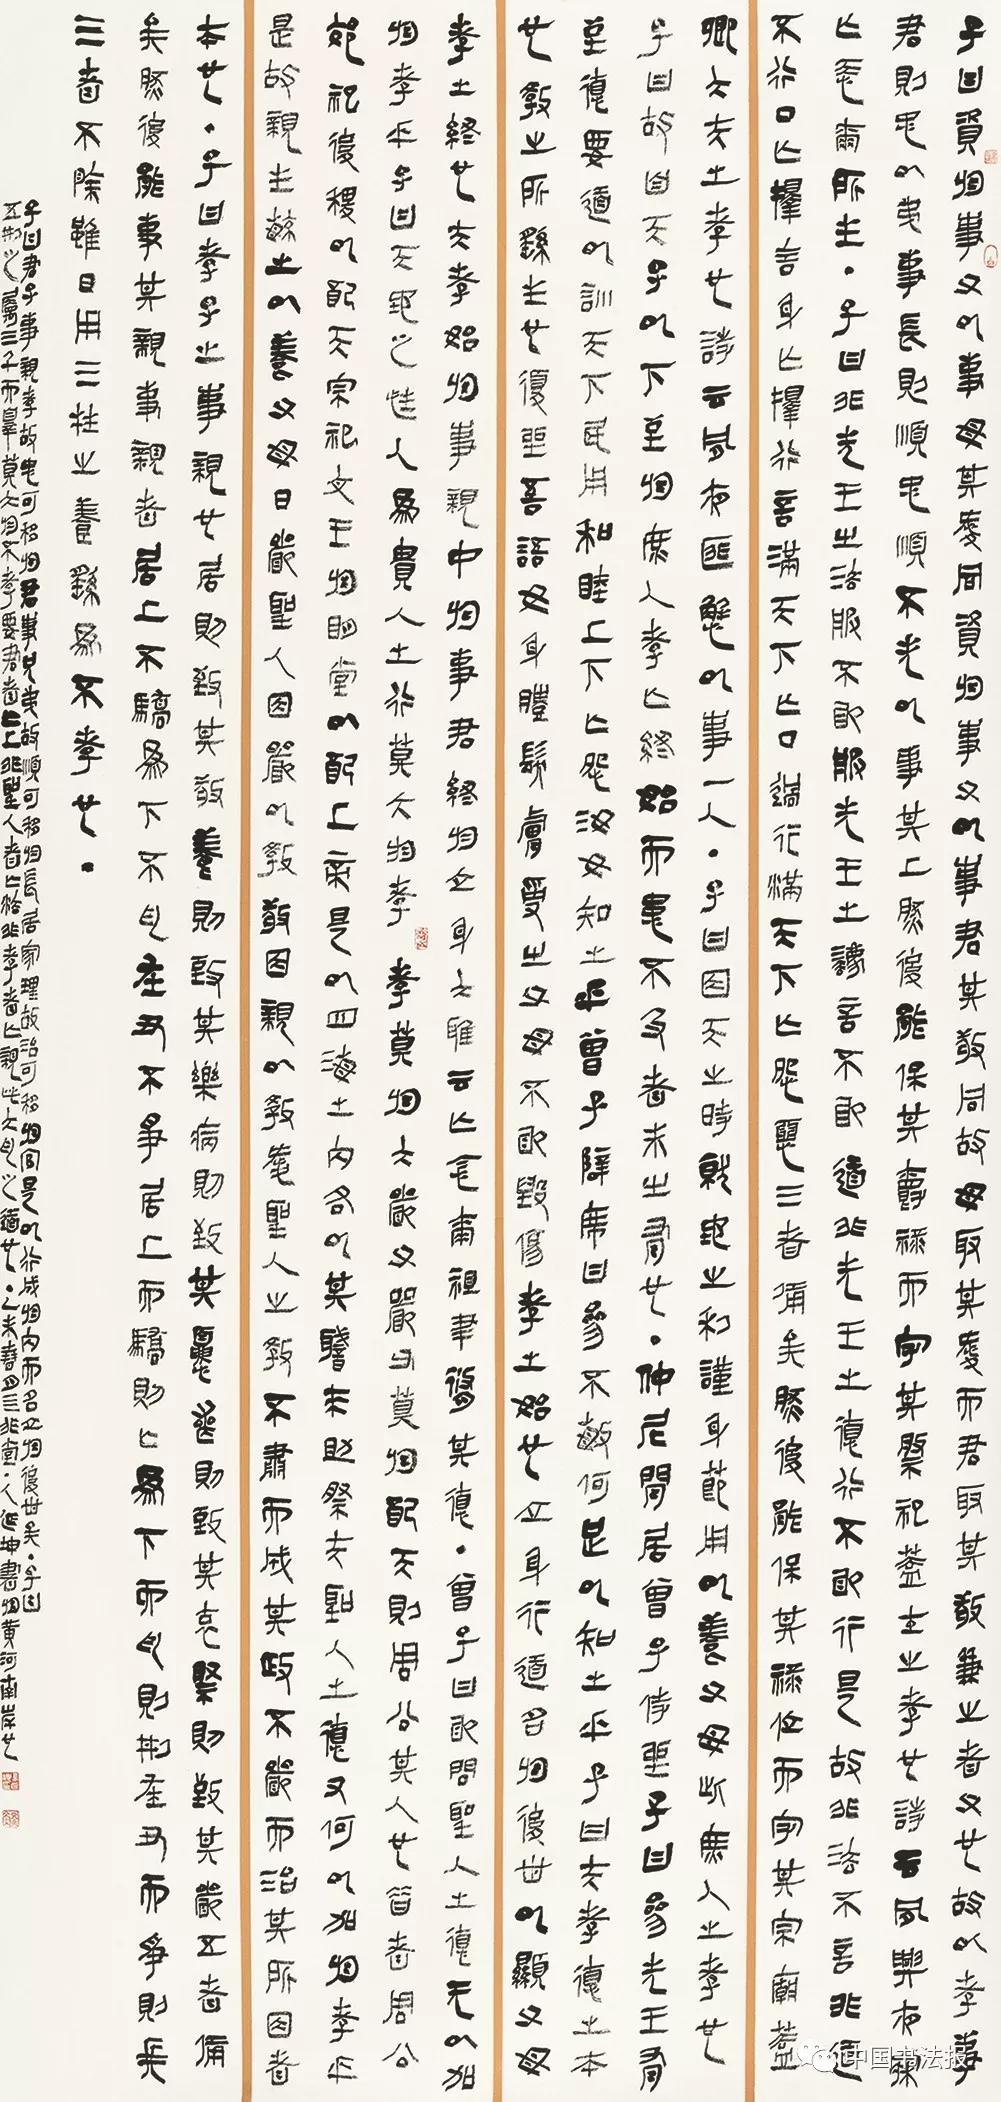 子曰資於事父以事母其愛同資於事父以事君其敬同故母取其愛而君取其敬兼之者父也故以孝事
君則忠以弟事長則順忠順不失以事其上然後能保其爵祿而守其祭祀蓋士之孝也詩云夙興夜寐
亡忝爾所生·子曰非先王之法服不敢服先王之法言不敢道非先王之德行不敢行是故非法不言非道
不行口亡擇言身亡擇行言滿天下亡口過行滿天下亡怨惡三者備矣然後能保其祿位而守其宗廟蓋
卿大夫之孝也詩云夙夜匪懈以事一人·子曰因天之時就地之利謹身節用以養父母此庶人之孝也
子曰故自天子以下至於庶人孝亡終始而患不及者未之有也·仲尼閒居曾子侍坐子曰參先王有
至德要道以訓天下民用和睦上下亡怨汝知之乎曾子辟席曰參不敏何足以知之乎子曰夫孝德之本
也教之所繇生也復坐吾語女身體髮膚受之父母不敢毀傷孝之始也立身行道名於後世以顯父母
孝之終也夫孝始於事親中於事君終於立身大雅云亡念爾祖聿修其德·曾子曰敢問聖人之德亡以加
於孝乎子曰天地之性人為貴人之行莫大於孝孝莫於大嚴父嚴父莫於配天則周公其人也昔者周公
郊祀後稷以配天宗祀文王於明堂以配上帝是以四海之內各以其職來助祭夫聖人之德又何以加於孝乎
是故親生毓之以養父母日嚴聖人因嚴以教敬因親以教愛聖人之教不肅而成其政不嚴而治其所因者
本也·子曰孝子之事親也居則致其敬養則致其樂病則致其憂喪則致其哀祭則致其嚴五者備
矣然後能事其親事親者居上不驕為下不亂在丑不爭居上而驕則亡為下而亂則刑在丑而爭則兵
三者不除雖日用三牲之養繇為不孝也·
子曰君子事親孝故忠可移於君事兄弟故順可移於長居家理故治可移於官是以行成於內而名立於後世矣·子曰
五刑之屬三千而辠莫大於不孝要君者亡上非聖人者亡法非孝者亡親此大亂之道也·乙未春月三非堂·人延坤書於黃河南岸也
中国书法报